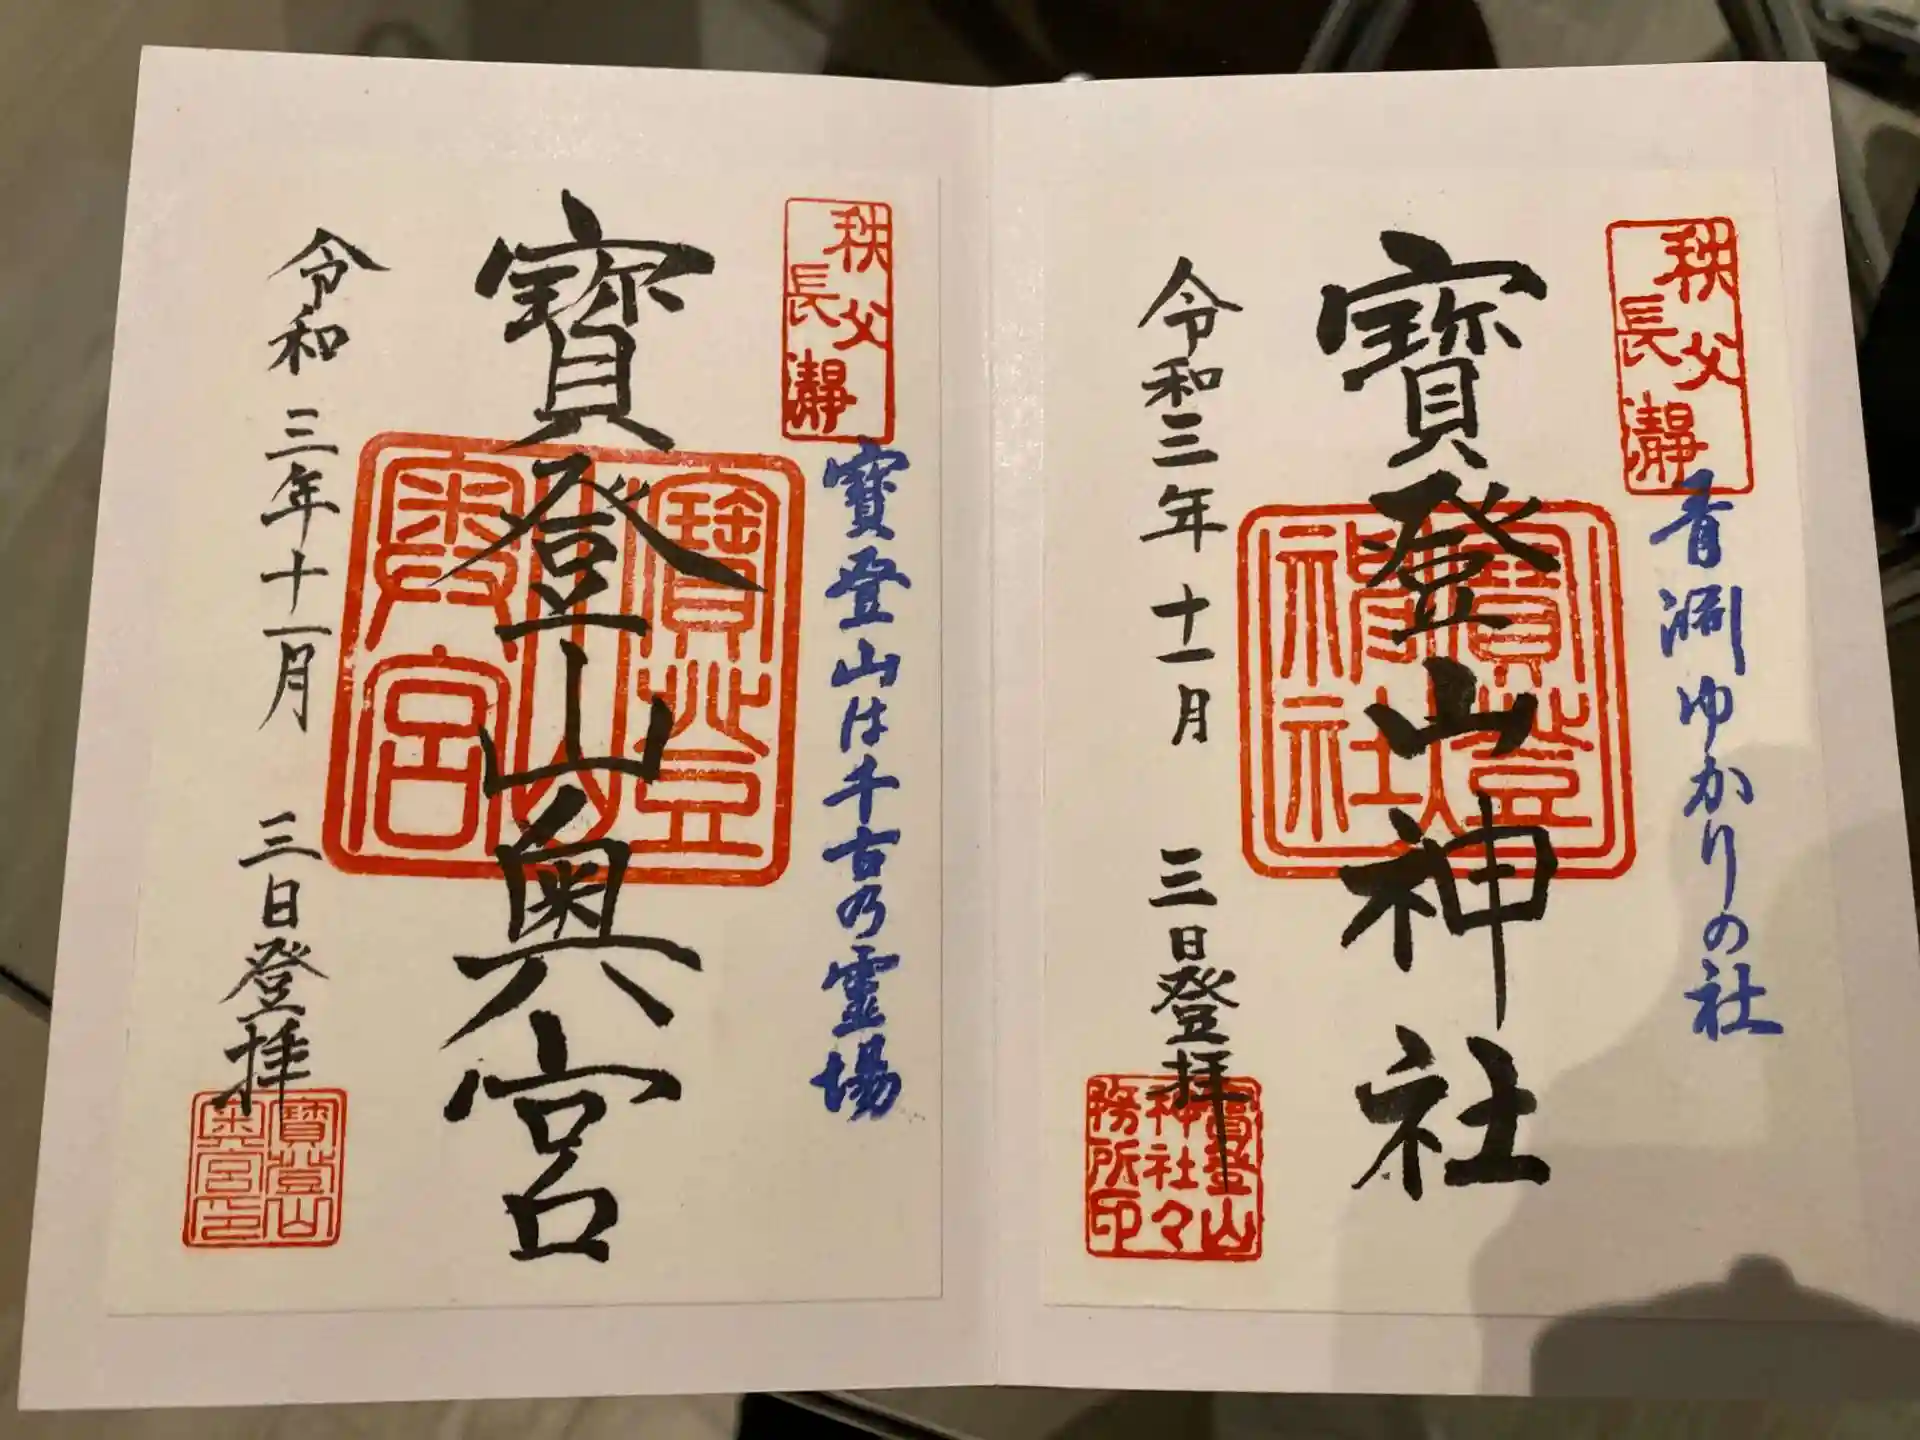 秩父
長瀞
青淵ゆかりの社
寶登山神社
寶登山
神社
令和三年十一月 三日登拝
寶登山
神社々
務所印
秩父
長瀞
寶登山は千古乃霊場
寶登山奥宮
寶登
山
奥宮
令和 三年十一月 三日登拝
寶登山
奥宮印